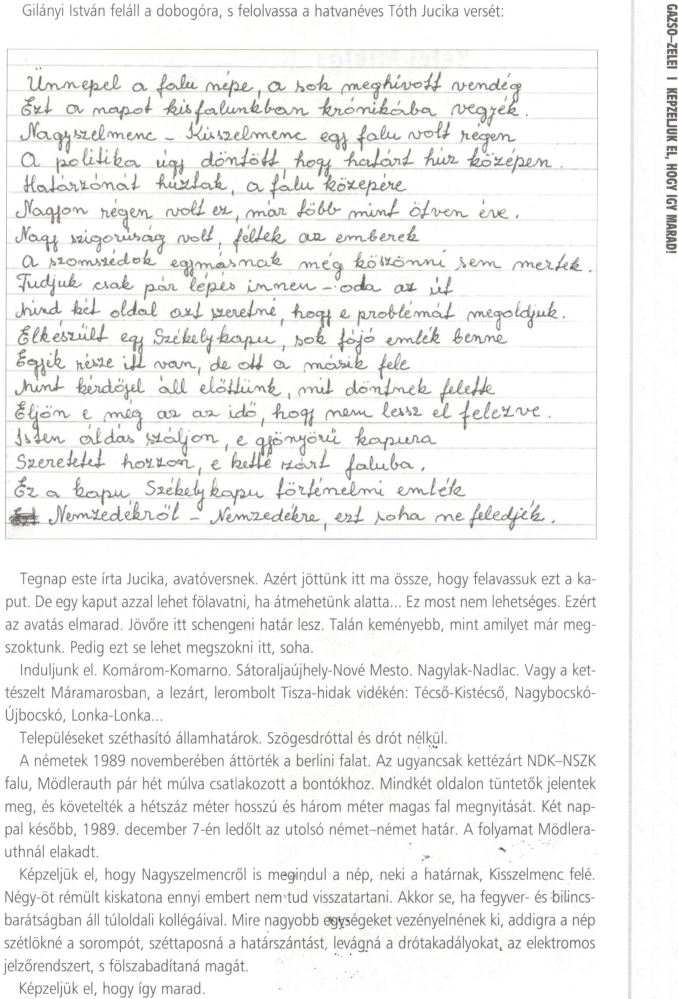 Gilányi István feláll a dobogóra, s felolvassa a hatvanéves Tóth Jucika versét:
Ünnepel a falu népe, a sok meghívott vendég
Ezt a napot kisfalunkban krónikába vegyék.
Nagyszelmenc – Kisszelmenc egy falu volt régen
A politika úgy döntött, hogy határt húz középen.
Határzónát húztak, a falu közepére
Nagyon régen volt ez, már több mint ötven éve.
Nagy szigorúság volt, féltek az emberek
A szomszédok egymásnak még köszönni sem mertek.
Tudjuk csak pár lépés innen – oda az út
Mind két oldal azt szeretné, hogy e problémát megoldjuk.
Elkészült egy Székelykapu, sok fájó emlék benne
Egyik része itt van, de ott a másik fele
Mint kérdőjel áll előttünk, mit döntnek felette
Eljön e még az az idő, hogy nem lessz el felezve.
Isten áldás száljon, e gyönyörű kapura
Szeretetet hozzon, e ketté zárt faluba.
Ez a kapu Székely kapu történelmi emlék
Nemzedékről – Nemzedékre, ezt soha ne feledjék.
Tegnap este írta Jucika, avatóversnek. Azért jöttünk itt ma össze, hogy felavassuk ezt a ka-
put. De egy kaput azzal lehet fölavatni, ha átmehetünk alatta... Ez most nem lehetséges. Ezért
az avatás elmarad. Jövőre itt schengeni határ lesz. Talán keményebb, mint amilyet már meg-
szoktunk. Pedig ezt se lehet megszokni itt, soha.
Induljunk el. Komárom-Komarno. Sátoraljaújhely-Nové Mesto. Nagylak-Nadlac. Vagy a ket-
tészelt Máramarosban, a lezárt, lerombolt Tisza-hidak vidékén: Técső-Kistécső, Nagybocskó-
Újbocskó, Lonka-Lonka...
Településeket széthasító államhatárok. Szögesdróttal és drót nélkül.
A németek 1989 novemberében áttörték a berlini falat. Az ugyancsak kettézárt NDK–NSZK
falu, Mödlerauth pár hét múlva csatlakozott a bontókhoz. Mindkét oldalon tüntetők jelentek
meg, és követelték a hétszáz méter hosszú és három méter magas fal megnyitását. Két nap-
pal később, 1989. december 7-én ledőlt az utolsó német–német határ. A folyamat Mödlera-
uthnál elakadt.
Képzeljük el, hogy Nagyszelmencről is megindul a nép, neki a határnak, Kisszelmenc felé.
Négy-öt rémült kiskatona ennyi embert nem tud visszatartani. Akkor se, ha fegyver- és bilincs-
barátságban áll túloldali kollégáival. Mire nagyobb egységeket vezényelnének ki, addigra a nép
szétlökné a sorompót, széttaposná a határszántást, levágná a drótakadályokat, az elektromos
jelzőrendszert, s fölszabadítaná magát.
Képzeljük el, hogy így marad.
GAZSÓ–ZELEI I KÉPZELJÜK EL, HOGY ÍGY MARAD!